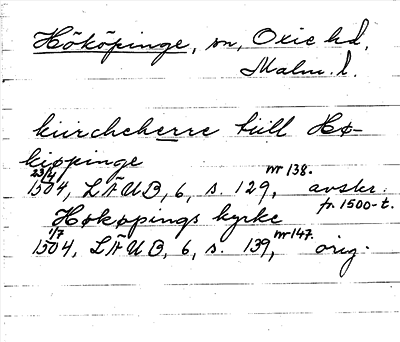 Hököpinge, sn, Oxie hd,
Malm. l.
kiircheherre till Hø-
kiøpinge
23/4 1504, LÄUB, 6, s. 129, nr 138. avskr.
fr. 1500-t.
Høkøpings kyrke
1/7 1504, LÄUB, 6, s. 139, nr 147. orig.